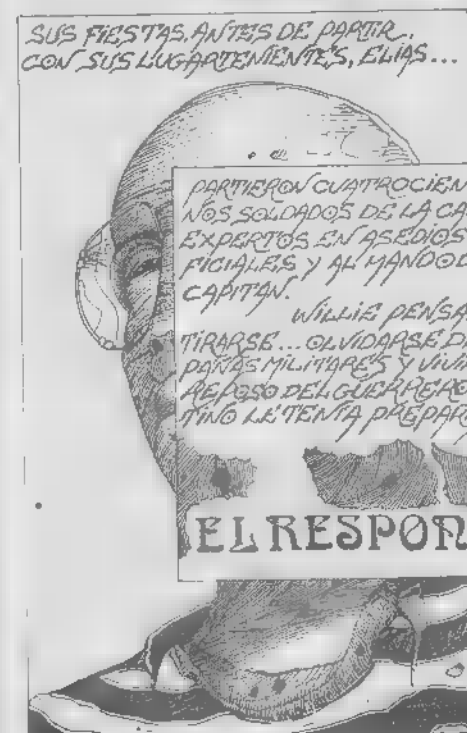 SUS FIESTAS, ANTES DE PARTIR.
CON SUS LUGARTENIENTES, ELIAS...
PARTIERON CUATROCIEN
NOS SOLDADOS DE LA CA
EXPERTOS EN ASEDIOS
FICIALES Y AL MANDO D
CAPITAN.
WILLIE PENSA
TIRARSE... OLVIDARSE DE
PAÑAS MILITARES Y VIVIR
REPOSO DEL GUERRERO
TINO LE TENIA PREPAR
EL RESPON